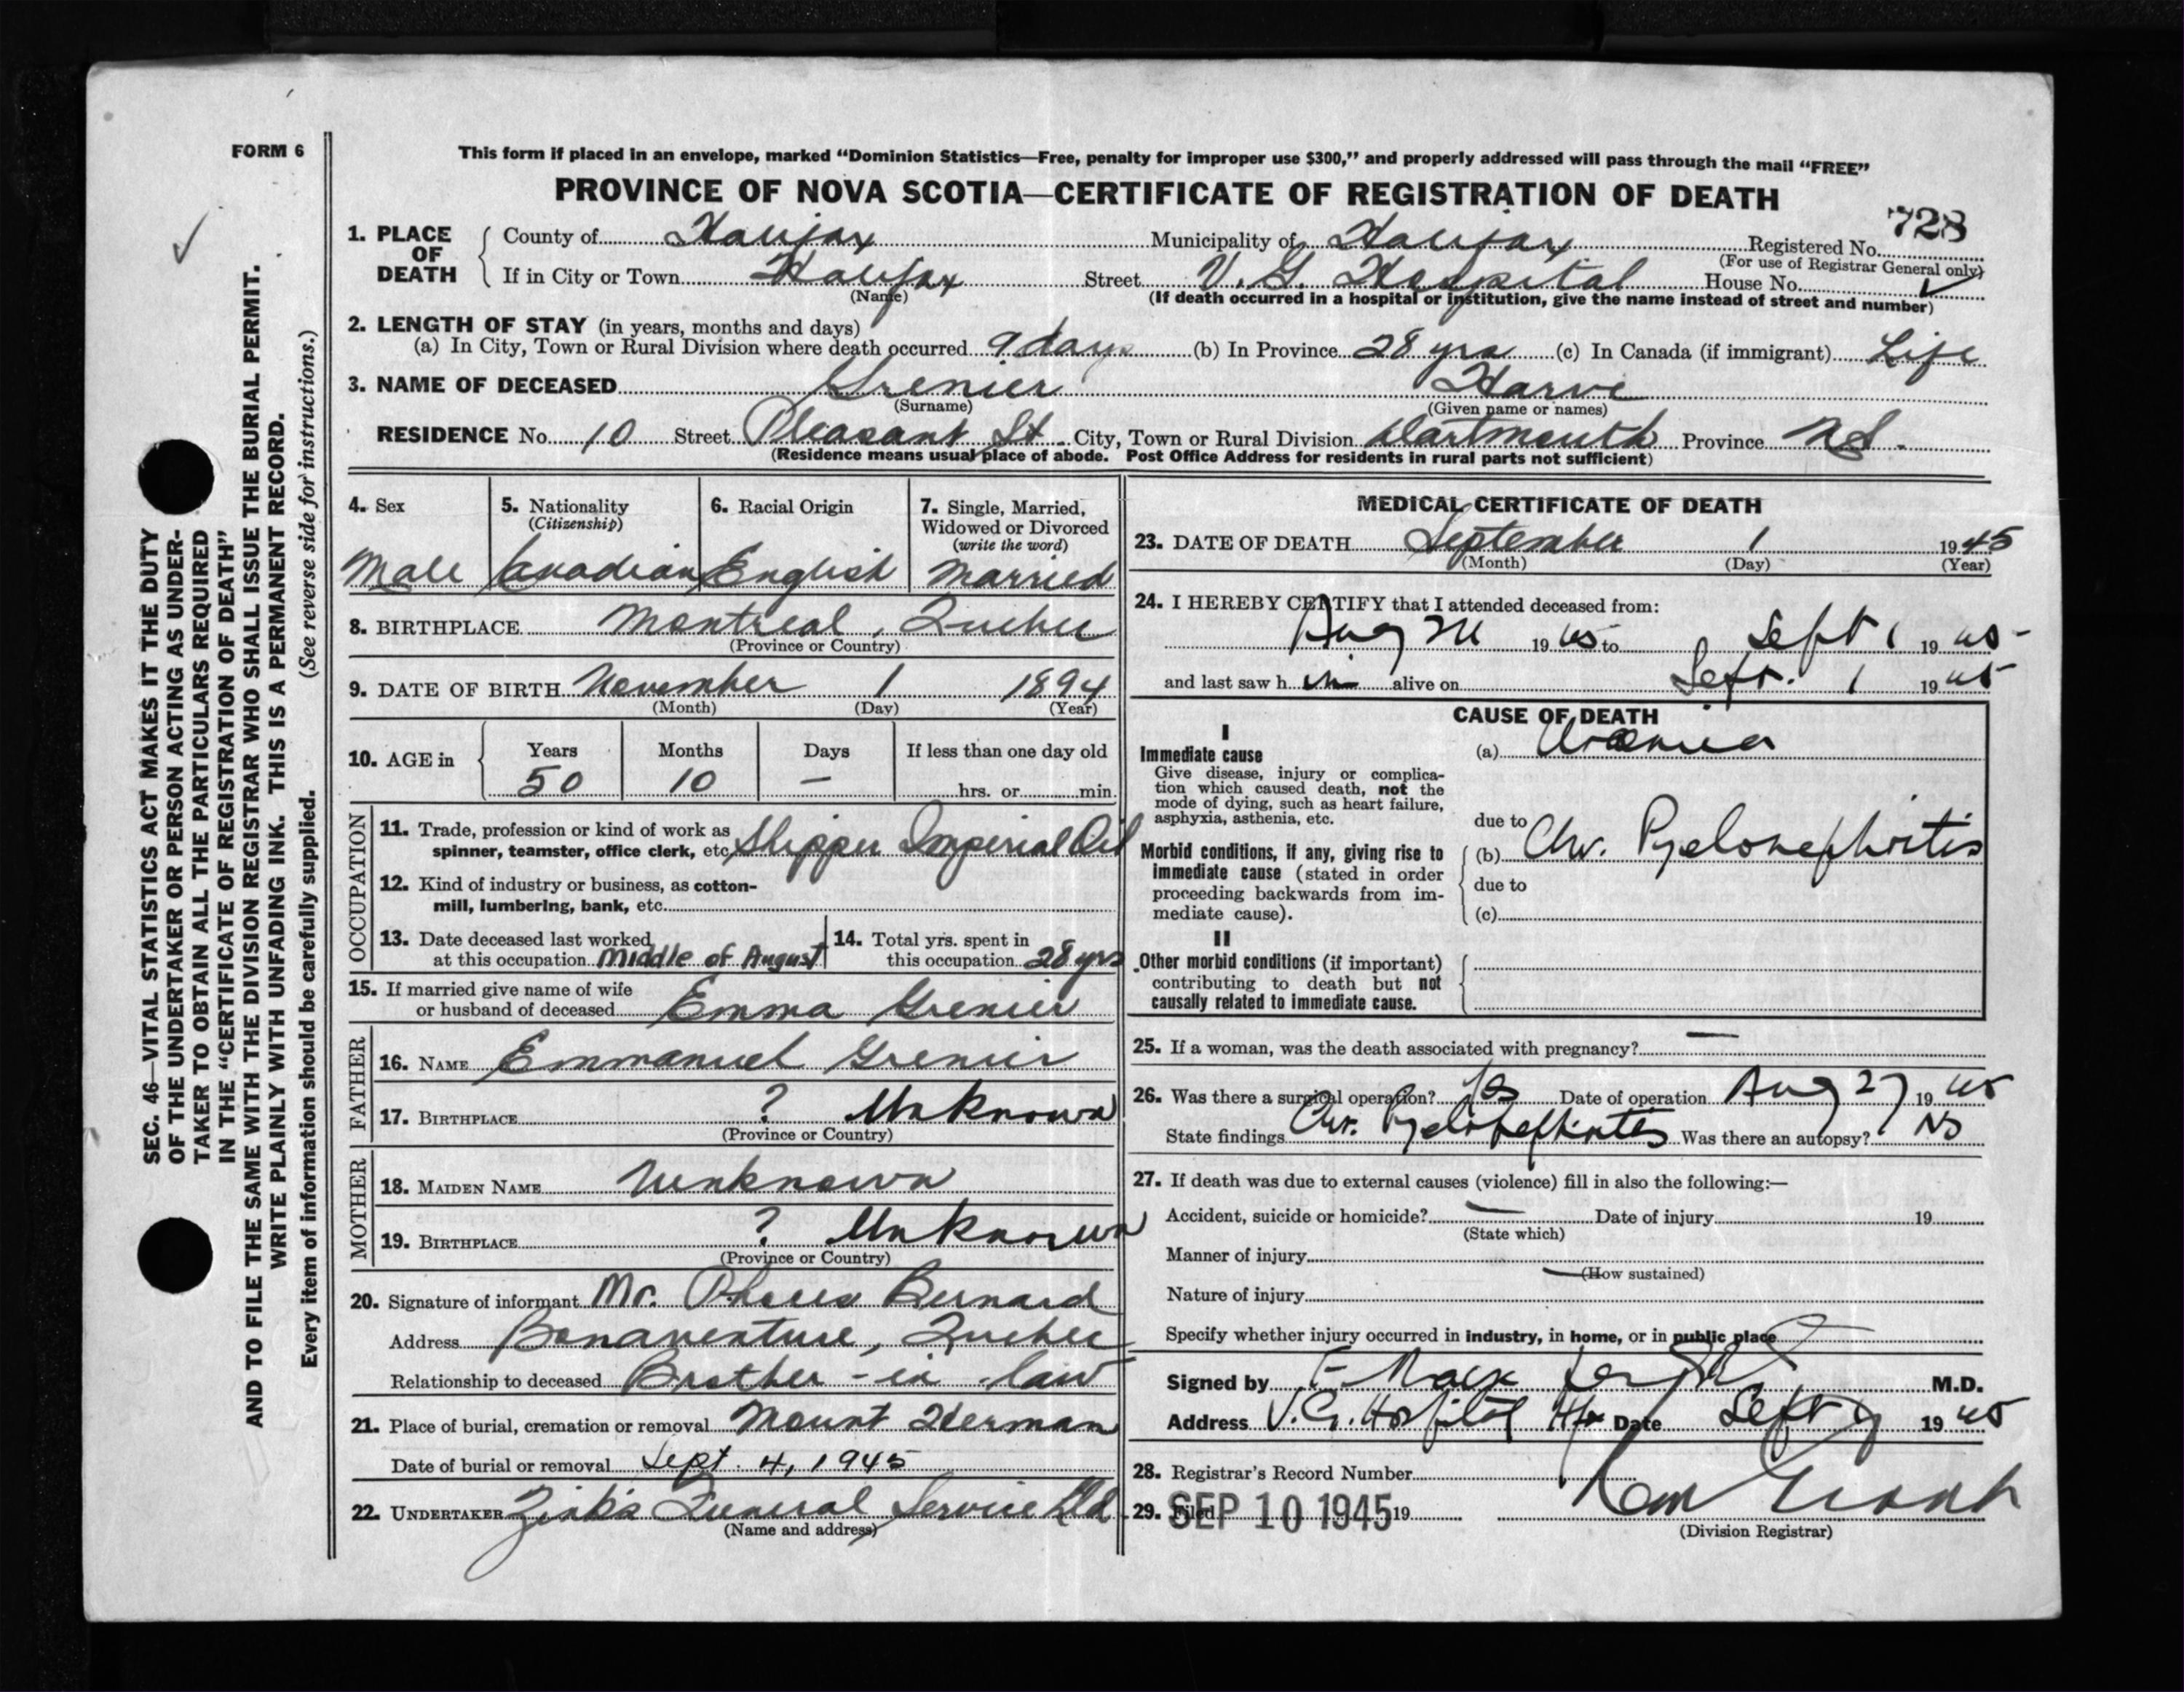 FORM 6
This form if placed in an envelope, marked “Dominion Statistics—Free, penalty for improper use $300,” and properly addressed will pass through the mail “FREE”
PROVINCE OF NOVA SCOTIA—CERTIFICATE OF REGISTRATION OF DEATH
1. PLACE OF DEATH
County of Halifax Municipality of Halifax Registered No. 728
(For use of Registrar General only)
If in City or Town Halifax Street V. G. Hospital House No.
(Name) (If death occurred in a hospital or institution, give the name instead of street and number)
2. LENGTH OF STAY (in years, months and days)
(a) In City, Town or Rural Division where death occurred 9 days (b) In Province 28 yrs (c) In Canada (if immigrant) Life
3. NAME OF DECEASED Grenier Harve
(Surname) (Given name or names)
RESIDENCE No. 10 Street Pleasant St. City, Town or Rural Division Dartmouth Province N.S.
(Residence means usual place of abode. Post Office Address for residents in rural parts not sufficient)
4. Sex 5. Nationality (Citizenship) 6. Racial Origin 7. Single, Married, Widowed or Divorced (write the word)
Male Canadian English Married
8. BIRTHPLACE Montreal, Quebec
(Province or Country)
9. DATE OF BIRTH November 1 1894
(Month) (Day) (Year)
10. AGE in Years Months Days If less than one day old
50 10 — hrs. or min.
OCCUPATION
11. Trade, profession or kind of work as
spinner, teamster, office clerk, etc. Shipper Imperial Oil
12. Kind of industry or business, as cotton-
mill, lumbering, bank, etc.
13. Date deceased last worked 14. Total yrs. spent in
at this occupation Middle of August this occupation 28 yrs
15. If married give name of wife
or husband of deceased Emma Grenier
FATHER
16. NAME Emmanuel Grenier
17. BIRTHPLACE ? Unknown
(Province or Country)
MOTHER
18. MAIDEN NAME Unknown
19. BIRTHPLACE ? Unknown
(Province or Country)
20. Signature of informant Mr. Bernard
Address Bonaventure, Quebec
Relationship to deceased Brother-in-law
21. Place of burial, cremation or removal Mount Herman
Date of burial or removal Sept. 4, 1945
22. UNDERTAKER Zink's Funeral Service Ltd.
(Name and address)
MEDICAL CERTIFICATE OF DEATH
23. DATE OF DEATH September 1 1945
(Month) (Day) (Year)
24. I HEREBY CERTIFY that I attended deceased from:
Aug 1945 to Sept 1 1945
and last saw him alive on Sept. 1 1945
CAUSE OF DEATH
I
Immediate cause (a) Uraemia
Give disease, injury or complica-
tion which caused death, not the
mode of dying, such as heart failure,
asphyxia, asthenia, etc.
due to
Morbid conditions, if any, giving rise to (b) Chr. Pyelonephritis
immediate cause (stated in order
proceeding backwards from im-
mediate cause).
due to
(c)
II
Other morbid conditions (if important)
contributing to death but not
causally related to immediate cause.
25. If a woman, was the death associated with pregnancy? —
26. Was there a surgical operation? Yes Date of operation Aug 27 1945
State findings Chr. Pyelonephritis Was there an autopsy? No
27. If death was due to external causes (violence) fill in also the following:—
Accident, suicide or homicide? — Date of injury 19
(State which)
Manner of injury
(How sustained)
Nature of injury
Specify whether injury occurred in industry, in home, or in public place
Signed by M.D.
Address V.G. Hospital Hfx Date Sept 1945
28. Registrar's Record Number
29. Filed SEP 10 1945 19
(Division Registrar)
SEC. 46—VITAL STATISTICS ACT MAKES IT THE DUTY
OF THE UNDERTAKER OR PERSON ACTING AS UNDER-
TAKER TO OBTAIN ALL THE PARTICULARS REQUIRED
IN THE “CERTIFICATE OF REGISTRATION OF DEATH”
AND TO FILE THE SAME WITH THE DIVISION REGISTRAR WHO SHALL ISSUE THE BURIAL PERMIT.
WRITE PLAINLY WITH UNFADING INK. THIS IS A PERMANENT RECORD.
Every item of information should be carefully supplied. (See reverse side for instructions.)